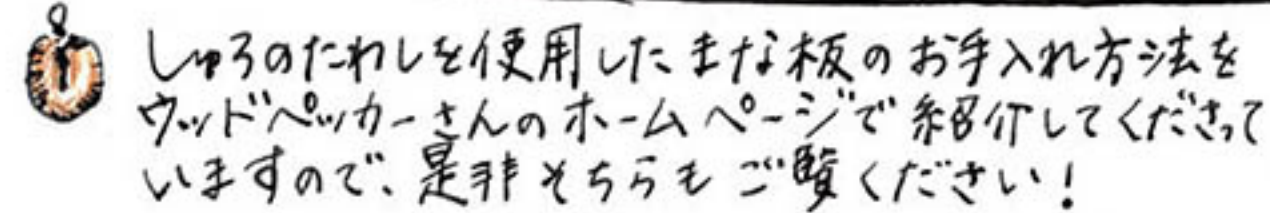 しゅろのたわしを使用したまな板のお手入れ方法を
ウッドペッカーさんのホームページで紹介してくださって
いますので、是非そちらもご覧ください!